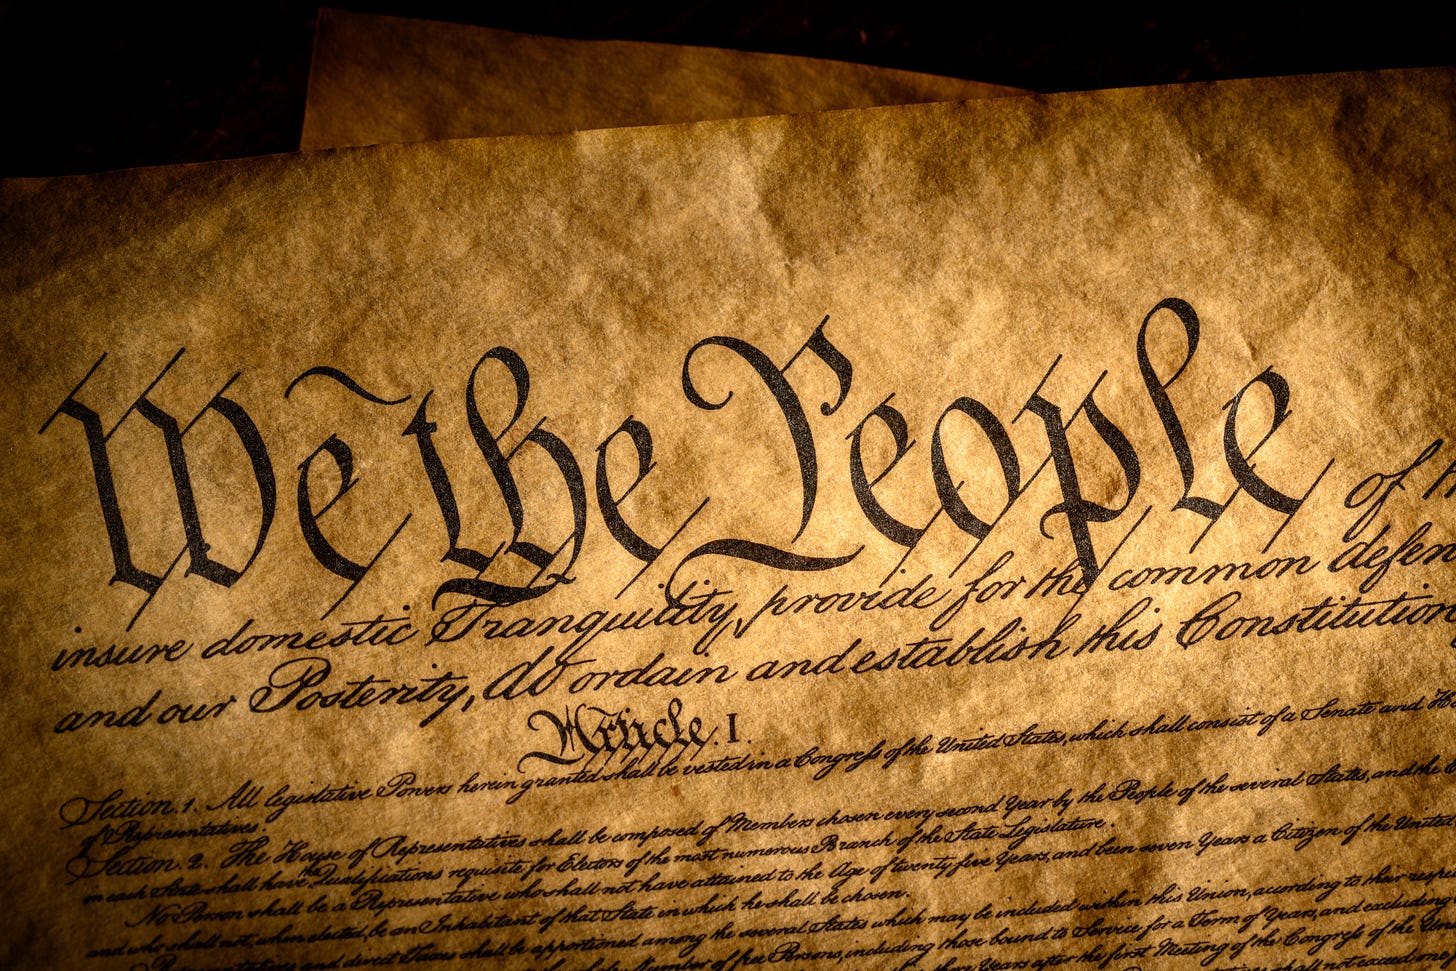 We the People of th
insure domestic Tranquility, provide for the common defen
and our Posterity, do ordain and establish this Constitution
Article. I.
Section. 1. All legislative Powers herein granted shall be vested in a Congress of the United States, which shall consist of a Senate and Ho
of Representatives.
Section. 2. The House of Representatives shall be composed of Members chosen every second Year by the People of the several States, and the
in each State shall have the Qualifications requisite for Electors of the most numerous Branch of the State Legislature.
No Person shall be a Representative who shall not have attained to the Age of twenty five Years, and been seven Years a Citizen of the United
and who shall not, when elected, be an Inhabitant of that State in which he shall be chosen.
Representatives and direct Taxes shall be apportioned among the several States which may be included within this Union, according to their respe
Number of free Persons, including those bound to Service for a Term of Years, and excluding
three Years after the first Meeting of the Congress of the Un
shall not exceed one